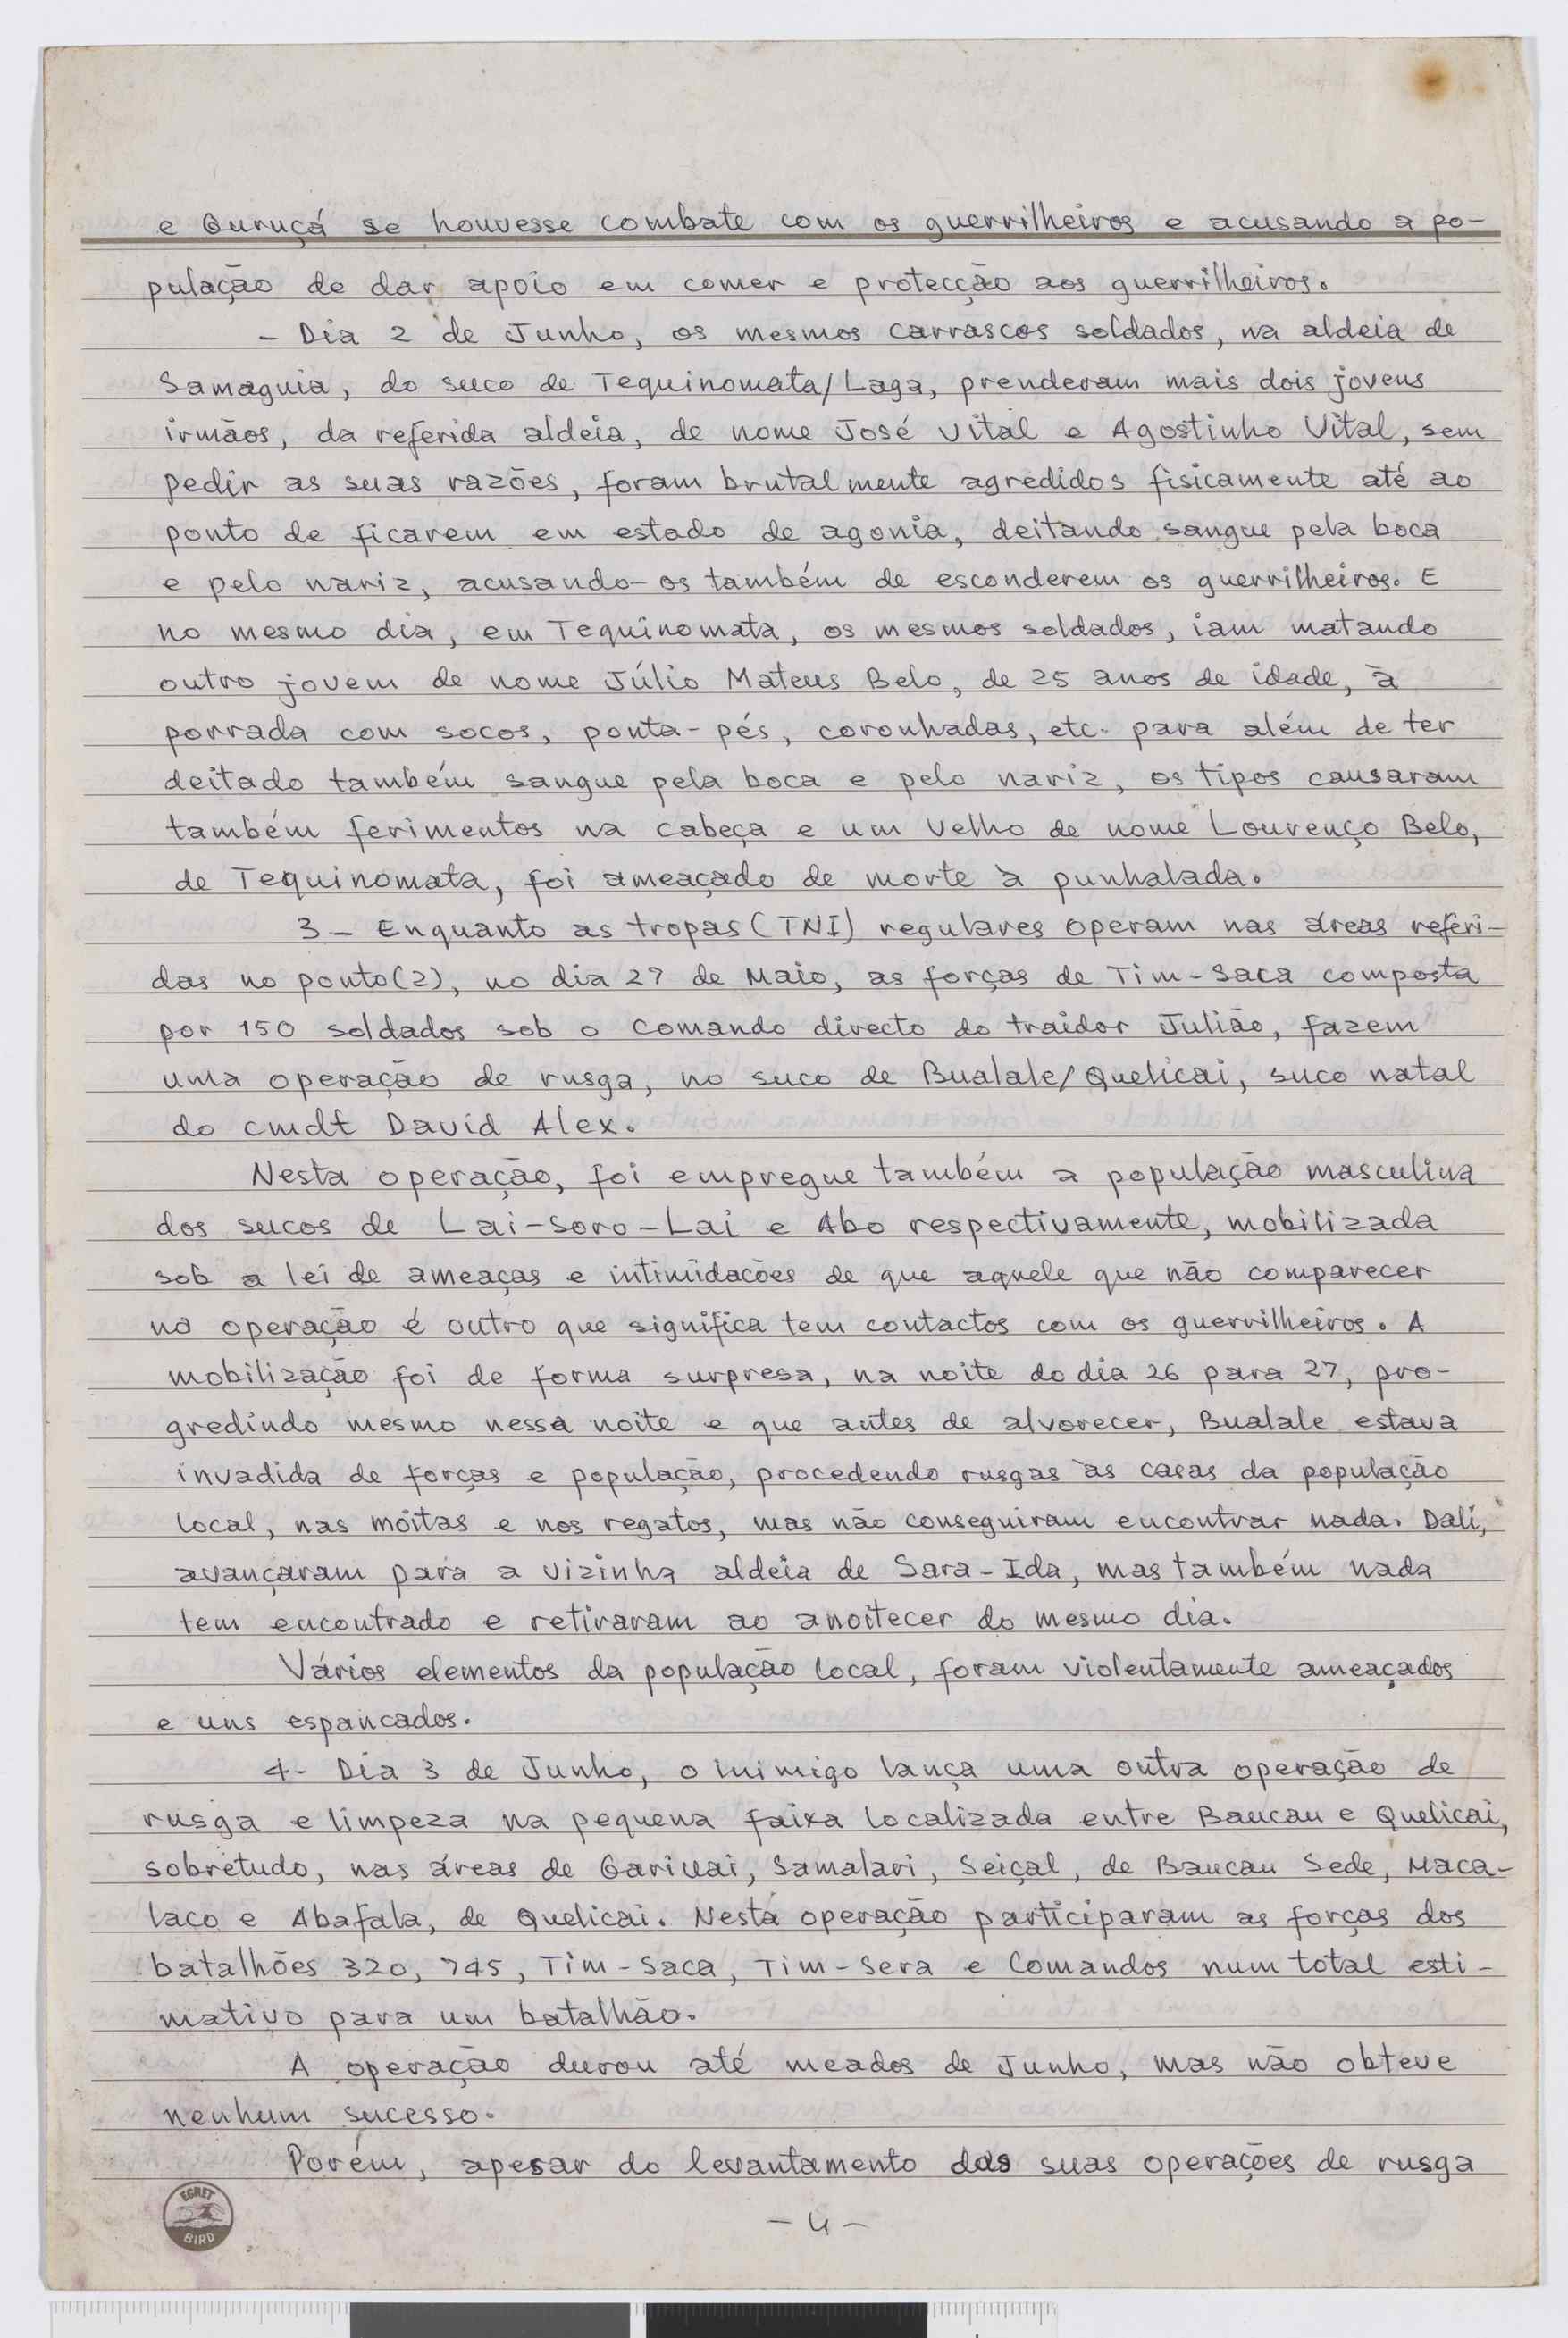 e Guruçá se houvesse combate com os guerrilheiros e acusando a po-
pulação de dar apoio em comer e protecção aos guerrilheiros.
- Dia 2 de Junho, os mesmos carrascos soldados, na aldeia de
Samaguia, do suco de Tequinomata/Laga, prenderam mais dois jovens
irmãos, da referida aldeia, de nome José Vital e Agostinho Vital, sem
pedir as suas razões, foram brutalmente agredidos fisicamente até ao
ponto de ficarem em estado de agonia, deitando sangue pela boca
e pelo nariz, acusando-os também de esconderem os guerrilheiros. E
no mesmo dia, em Tequinomata, os mesmos soldados, iam matando
outro jovem de nome Júlio Mateus Belo, de 25 anos de idade, à
porrada com socos, ponta-pés, coronhadas, etc. para além de ter
deitado também sangue pela boca e pelo nariz, os tipos causaram
também ferimentos na cabeça e um velho de nome Lourenço Belo,
de Tequinomata, foi ameaçado de morte à punhalada.
3 - Enquanto as tropas (TNI) regulares operam nas áreas referi-
das no ponto (2), no dia 27 de Maio, as forças de Tim-Saca composta
por 150 soldados sob o comando directo do traidor Julião, fazem
uma operação de rusga, no suco de Bualale/Quelicai, suco natal
do cmdt David Alex.
Nesta operação, foi empregue também a população masculina
dos sucos de Lai-Soro-Lai e Abo respectivamente, mobilizada
sob a lei de ameaças e intimidações de que aquele que não comparecer
na operação é outro que significa tem contactos com os guerrilheiros. A
mobilização foi de forma surpresa, na noite do dia 26 para 27, pro-
gredindo mesmo nessa noite e que antes de alvorecer, Bualale estava
invadida de forças e população, procedendo rusgas às casas da população
local, nas moitas e nos regatos, mas não conseguiram encontrar nada. Dali,
avançaram para a vizinha aldeia de Sara-Ida, mas também nada
tem encontrado e retiraram ao anoitecer do mesmo dia.
Vários elementos da população local, foram violentamente ameaçados
e uns espancados.
4- Dia 3 de Junho, o inimigo lança uma outra operação de
rusga e limpeza na pequena faixa localizada entre Baucau e Quelicai,
sobretudo, nas áreas de Gariuai, Samalari, Seiçal, de Baucau Sede, Maca-
laco e Abafala, de Quelicai. Nesta operação participaram as forças dos
batalhões 320, 745, Tim-Saca, Tim-Sera e Comandos num total esti-
mativo para um batalhão.
A operação durou até meados de Junho, mas não obteve
nenhum sucesso.
Porém, apesar do levantamento das suas operações de rusga
- 4 -
EGRET
BIRD